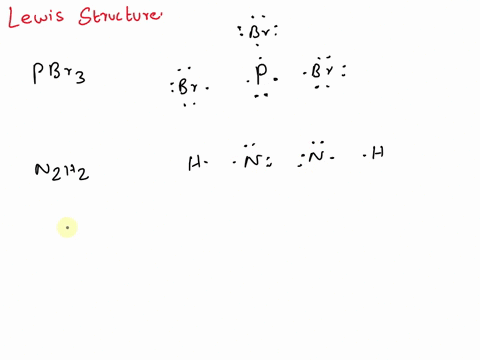 Lewis Structure
:Br:
PBr3 :Br. .P. .Br:
N2H2 H. .N: :N. .H